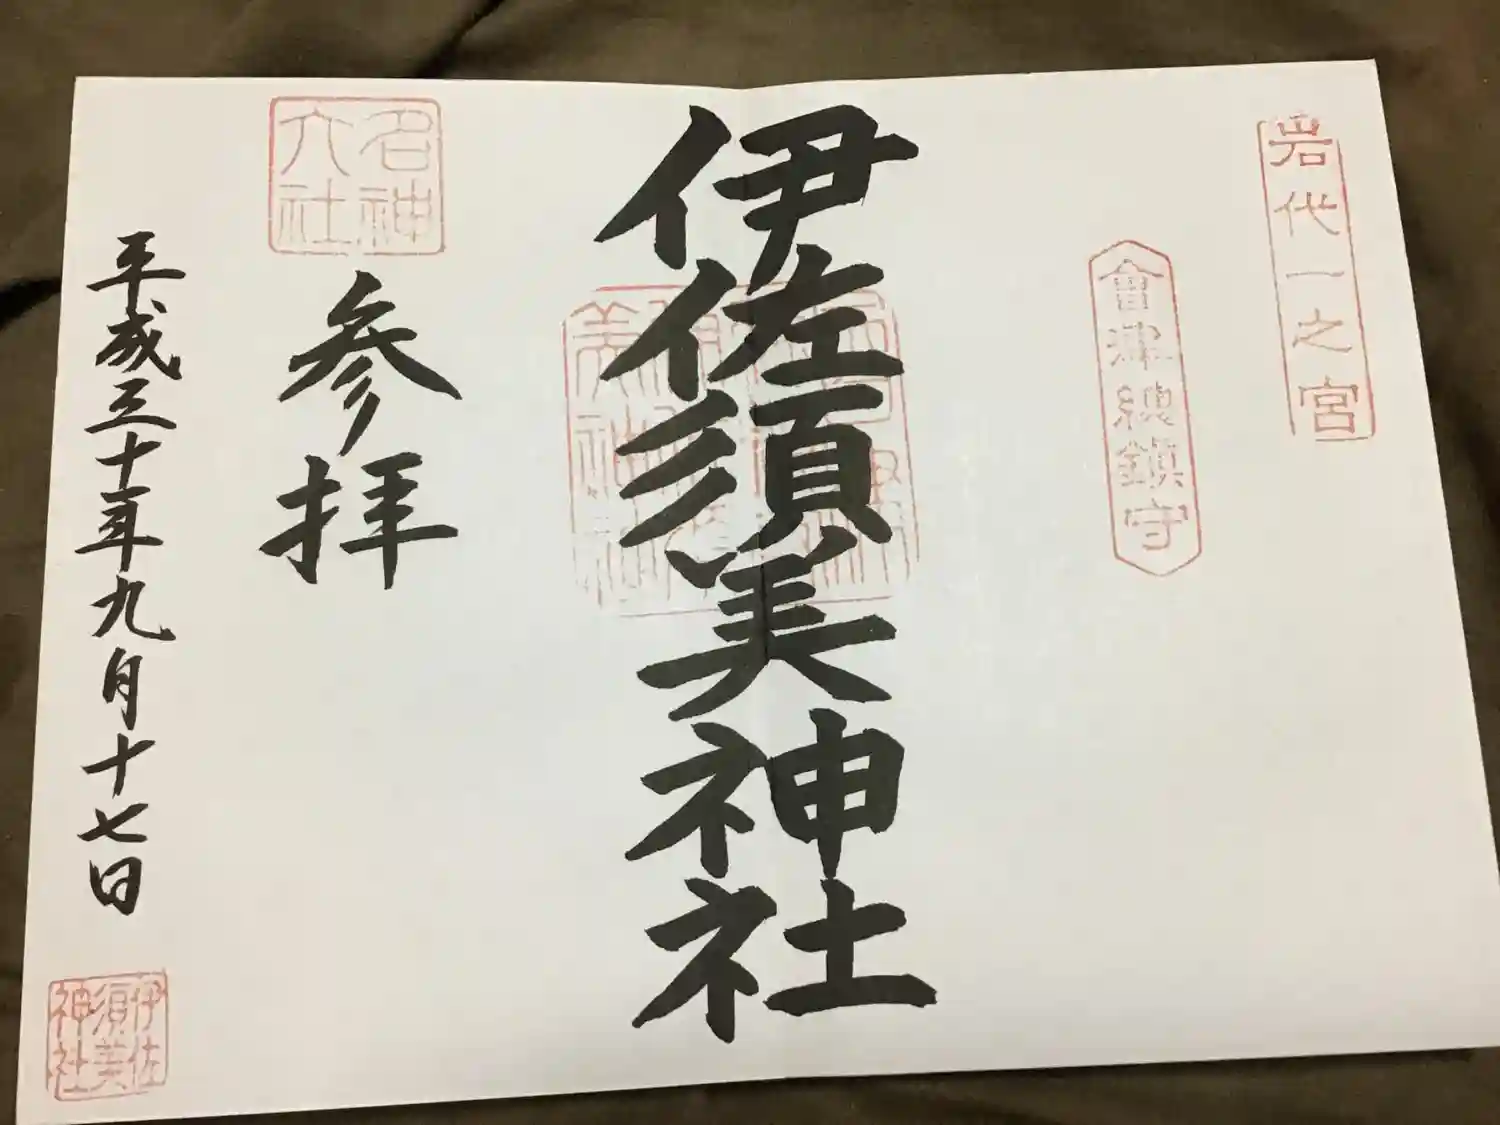 岩代一之宮
會津總鎮守
伊佐須美神社
名神
大社
参拝
平成三十年九月十七日
伊佐
須美
神社